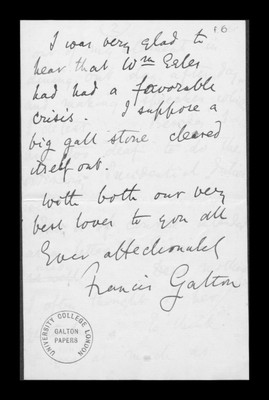 16
I was very glad to
hear that Wm Eeles
had had a favorable
crisis. I suppose a
big gall stone cleared
itself out.
With both our very
best loves to you all
Ever affectionately
Francis Galton
UNIVERSITY COLLEGE LONDON
GALTON
PAPERS